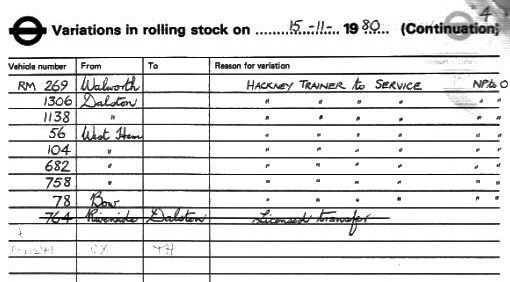 4
Variations in rolling stock on ..........15-11-... 1980... (Continuation)
Vehicle number From To Reason for variation
RM 269 Walworth HACKNEY TRAINER to SERVICE NP to O
1306 Dalston " " " " " "
1138 " " " " " " "
56 West Ham " " " " " "
104 " " " " " " "
682 " " " " " " "
758 " " " " " " "
78 Bow " " " " " "
764 Riverside Dalston Licensed transfer